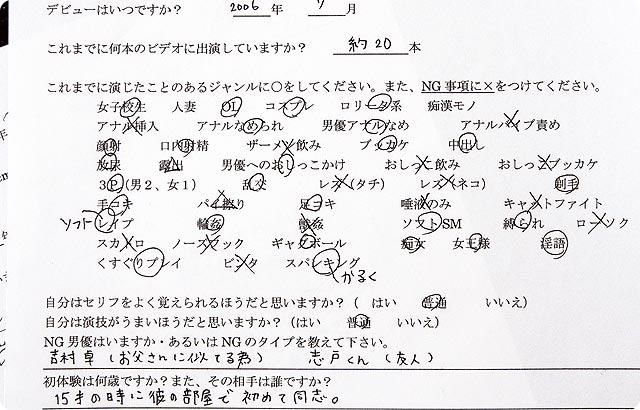 デビューはいつですか? 2006 年 7 月
これまでに何本のビデオに出演していますか? 約20 本
これまでに演じたことのあるジャンルに○をしてください。また、NG事項に×をつけてください。
女子校生 人妻 OL コスプレ ロリータ系 痴漢モノ
アナル挿入 アナルなめられ 男優アナルなめ アナルバイブ責め
顔射 口内射精 ザーメン飲み ブッカケ 中出し
放尿 露出 男優へのおしっこかけ おしっこ飲み おしっこブッカケ
3P(男2、女1) 乱交 レズ(タチ) レズ(ネコ)
手コキ パイ擦り 足コキ 唾液のみ キャットファイト
ソフト レイプ 輪姦 獣姦 ソフトSM 縛られ ローソク
スカトロ ノーズフック ギャグボール 痴女 女王様 淫語
くすぐりプレイ ビンタ スパンキング
かるく
自分はセリフをよく覚えられるほうだと思いますか?( はい 普通 いいえ)
自分は演技がうまいほうだと思いますか?(はい 普通 いいえ)
NG男優はいますか・あるいはNGのタイプを教えて下さい。
吉村卓(お父さんに似てる為) 志戸くん(友人)
初体験は何歳ですか?また、その相手は誰ですか?
15才の時に彼の部屋で初めて同志。